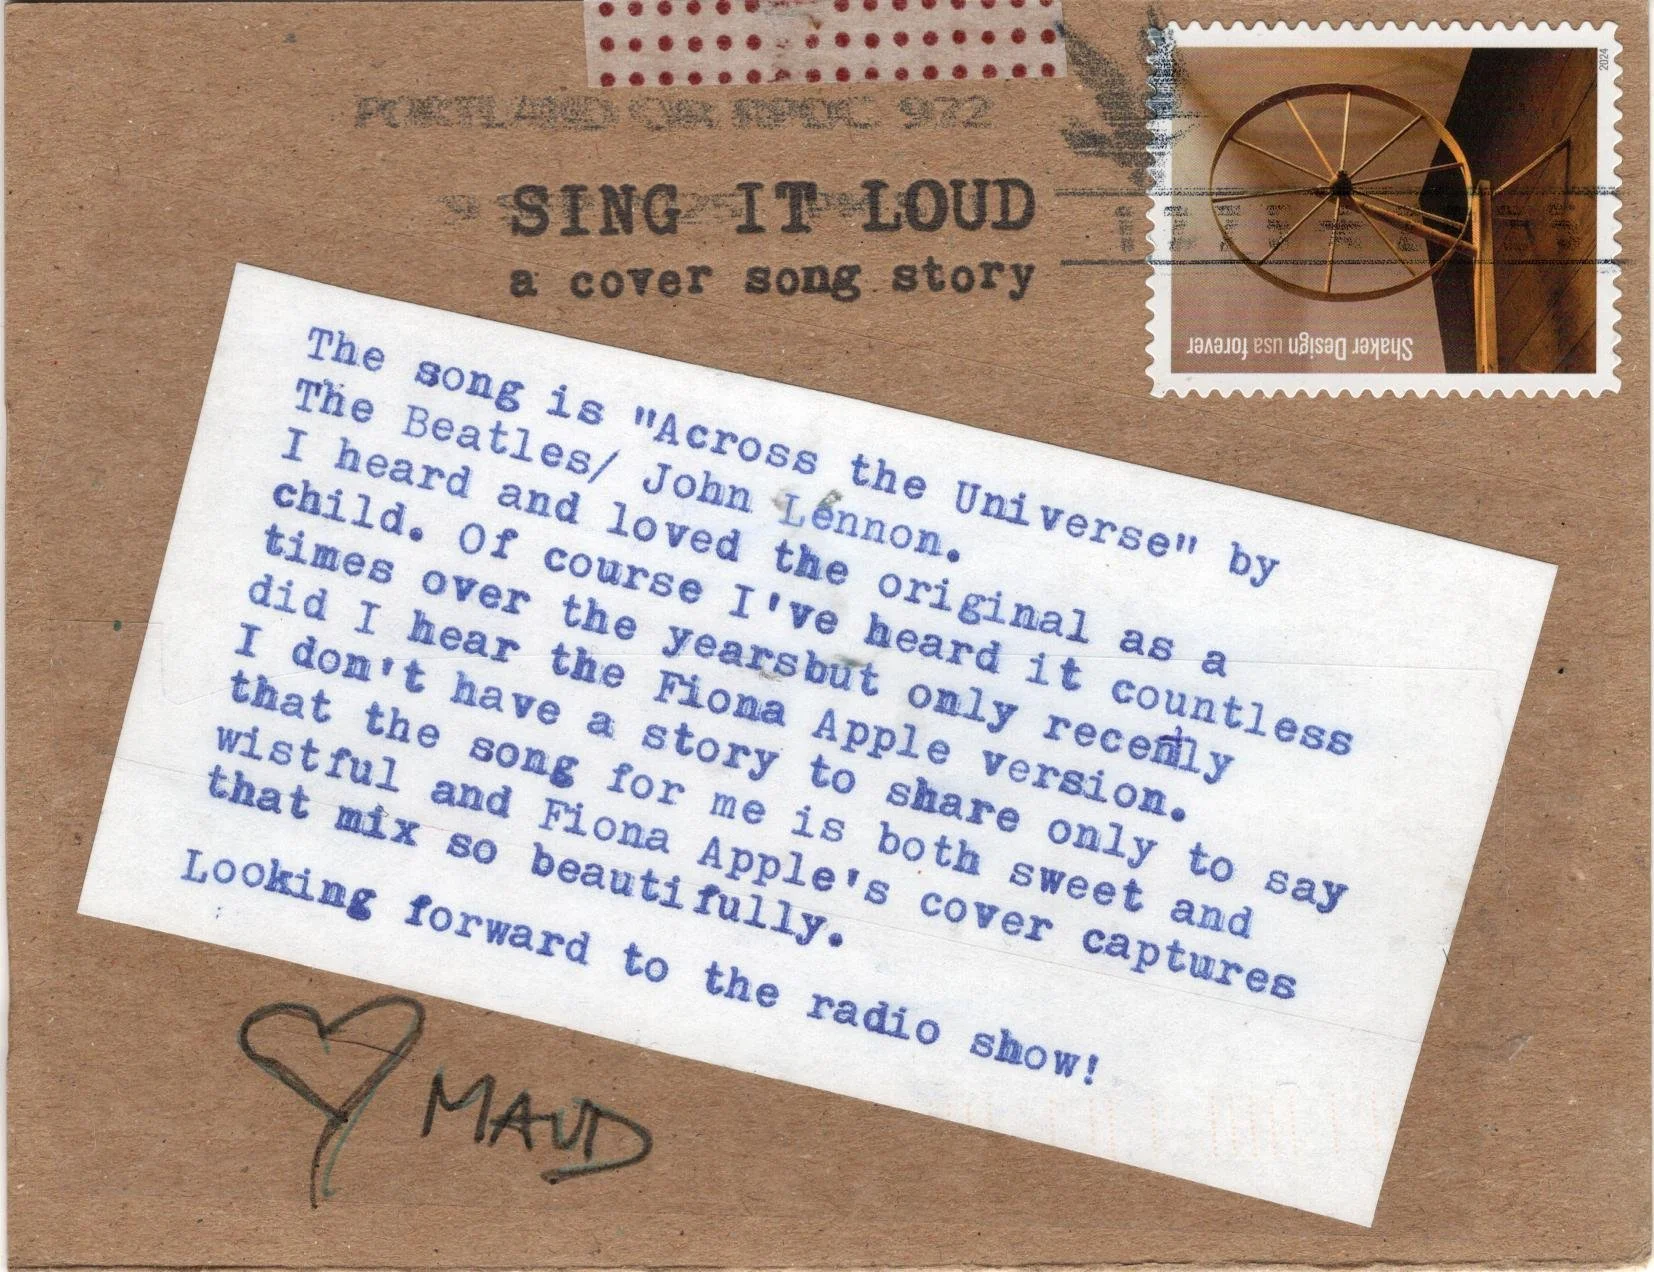 PORTLAND OR RPDC 972
SING IT LOUD
a cover song story
2024
Shaker Design usa forever
The song is "Across the Universe" by
The Beatles/ John Lennon.
I heard and loved the original as a
child. Of course I've heard it countless
times over the yearsbut only recently
did I hear the Fiona Apple version.
I don't have a story to share only to say
that the song for me is both sweet and
wistful and Fiona Apple's cover captures
that mix so beautifully.
Looking forward to the radio show!
MAUD